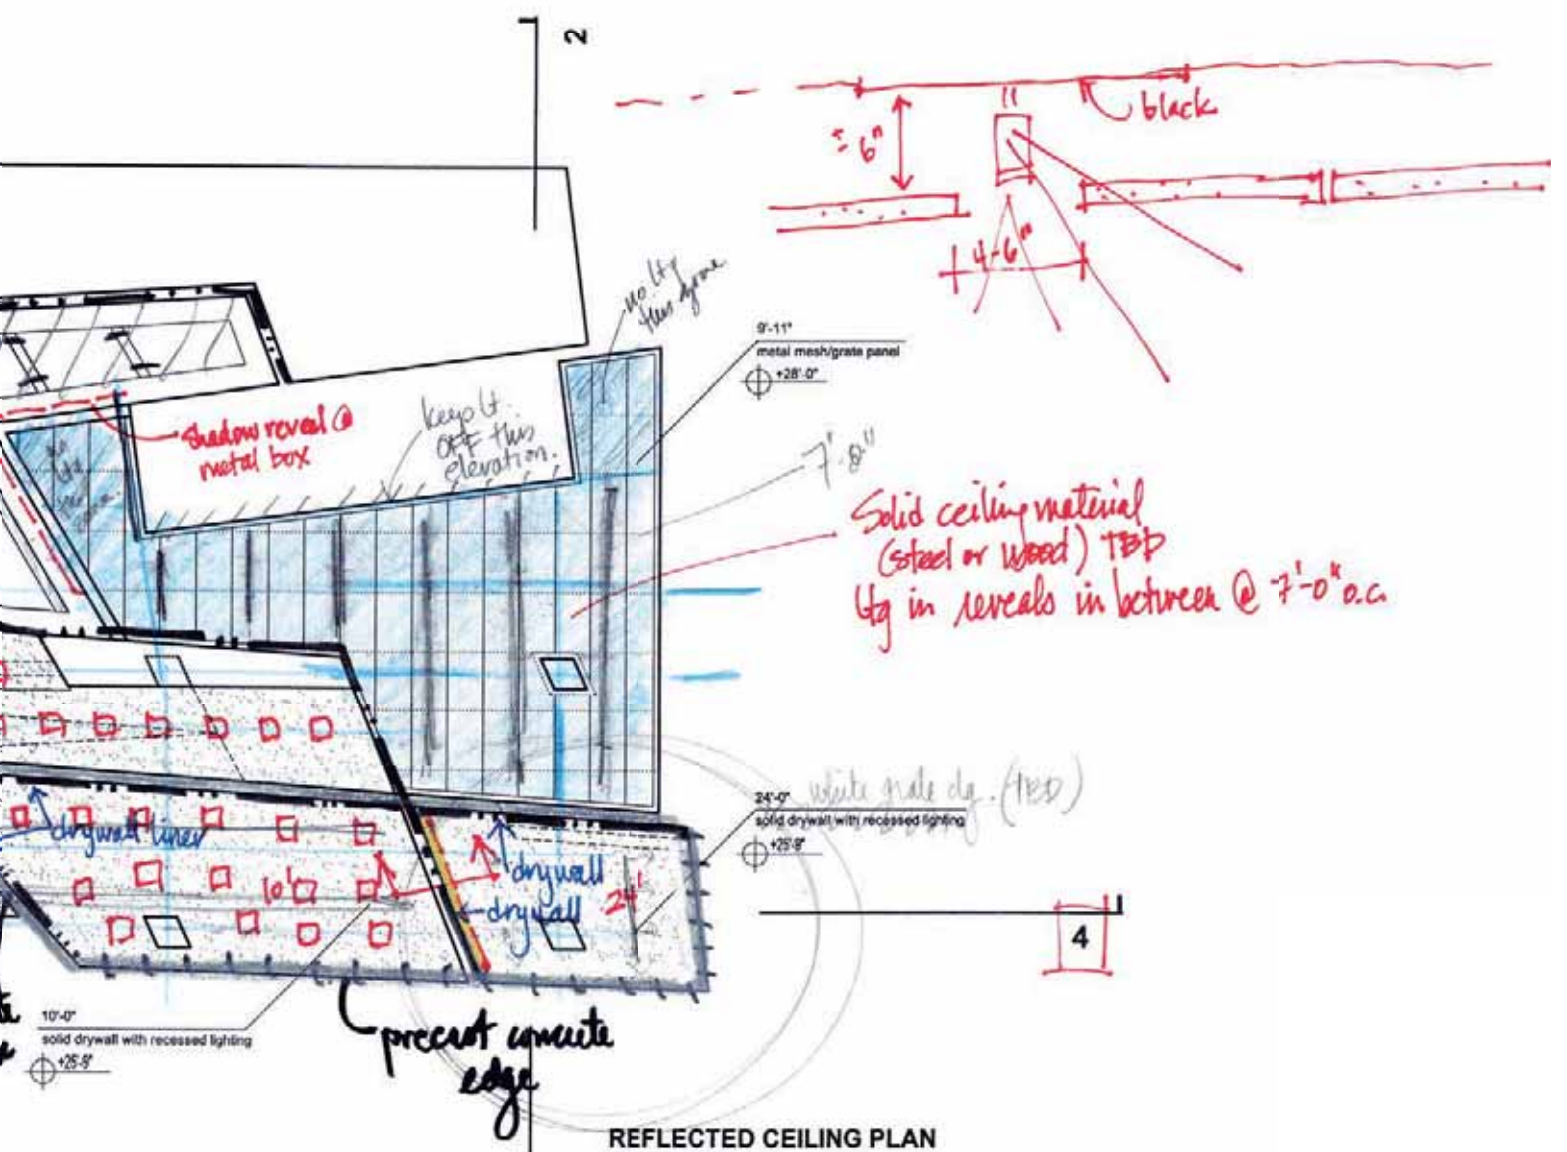 2
black
± 6"
4-6"
no ltg
this zone
9'-11"
metal mesh/grate panel
+28'-0"
shadow reveal @
metal box
keep lt.
OFF this
elevation.
no
ltg
zone.
7'-0"
Solid ceiling material
(steel or wood) TBD
ltg in reveals in between @ 7'-0" o.c.
24'-0"
white
(TBD)
solid drywall with recessed lighting
+25'-9"
drywall liner
10'
drywall
drywall
24'
4
10'-0"
solid drywall with recessed lighting
+25'-9"
precast concrete
edge
REFLECTED CEILING PLAN